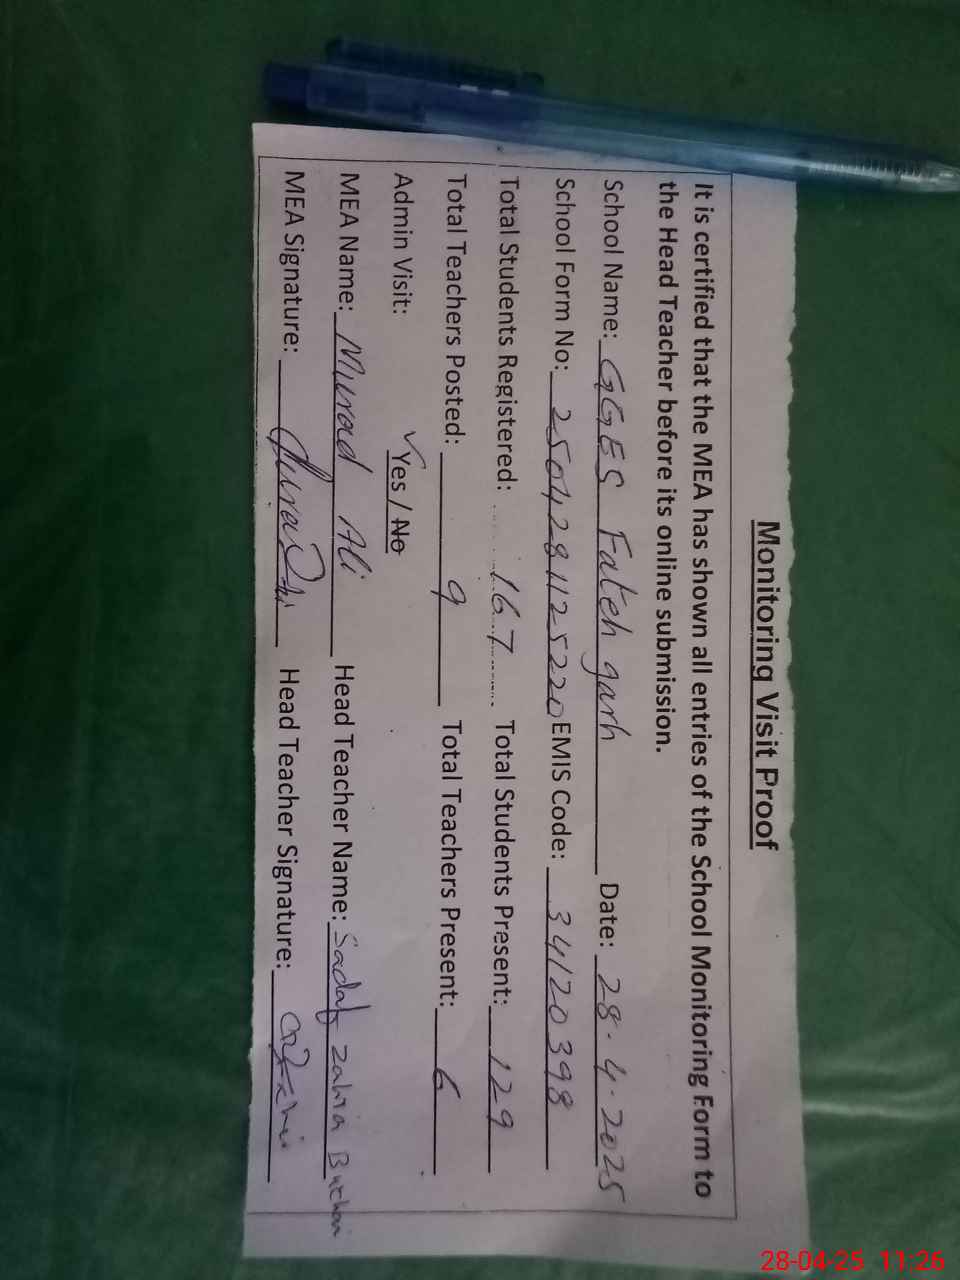 Monitoring Visit Proof
It is certified that the MEA has shown all entries of the School Monitoring Form to
the Head Teacher before its online submission.
School Name: GGES Fateh garh Date: 28.4.2025
School Form No: 2504281125220 EMIS Code: 34120398
Total Students Registered: 167 Total Students Present: 129
Total Teachers Posted: 9 Total Teachers Present: 6
Admin Visit: ✓Yes / No
MEA Name: Murad Ali Head Teacher Name: Sadaf Zahra
MEA Signature: Head Teacher Signature:
28-04-25 11:26